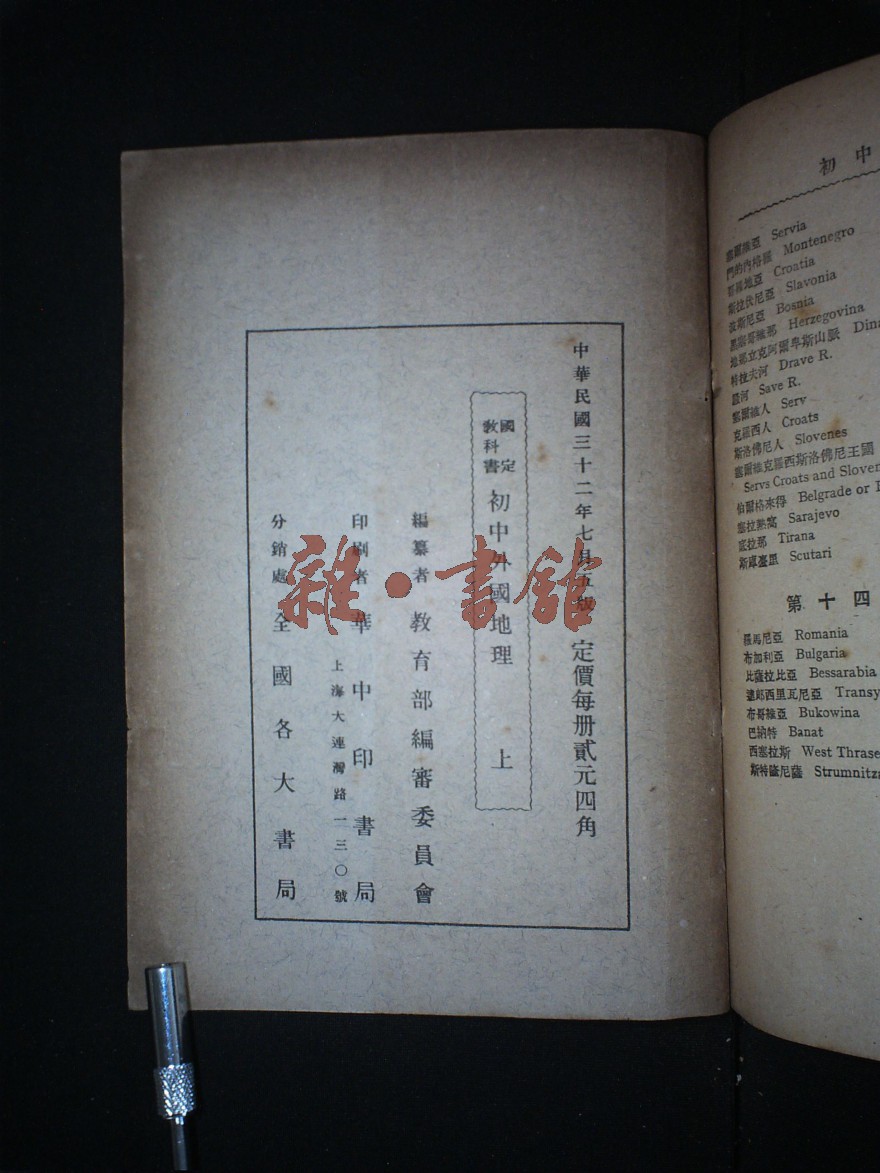 中華民國三十二年七月五版 定價每册貳元四角
國定教科書 初中外國地理 上
編纂者 教育部編審委員會
印刷者 華中印書局
上海大連灣路一三〇號
分銷處 全國各大書局
雜·書館
初中
塞爾維亞 Servia
門的內格羅 Montenegro
哥羅地亞 Croatia
斯拉伏尼亞 Slavonia
波斯尼亞 Bosnia
黑塞哥維那 Herzegovina
地那立克阿爾卑斯山脈 Dina
特拉夫河 Drave R.
薩河 Save R.
塞爾維人 Serv
克羅西人 Croats
斯洛佛尼人 Slovenes
塞爾維克羅西斯洛佛尼王國
Servs Croats and Sloven
伯爾格來得 Belgrade or B
塞拉熱窩 Sarajevo
底拉那 Tirana
斯庫臺里 Scutari
第十四
羅馬尼亞 Romania
布加利亞 Bulgaria
比薩拉比亞 Bessarabia
達郎西里瓦尼亞 Transy
布哥維亞 Bukowina
巴納特 Banat
西塞拉斯 West Thrase
斯特隆尼薩 Strumnitza